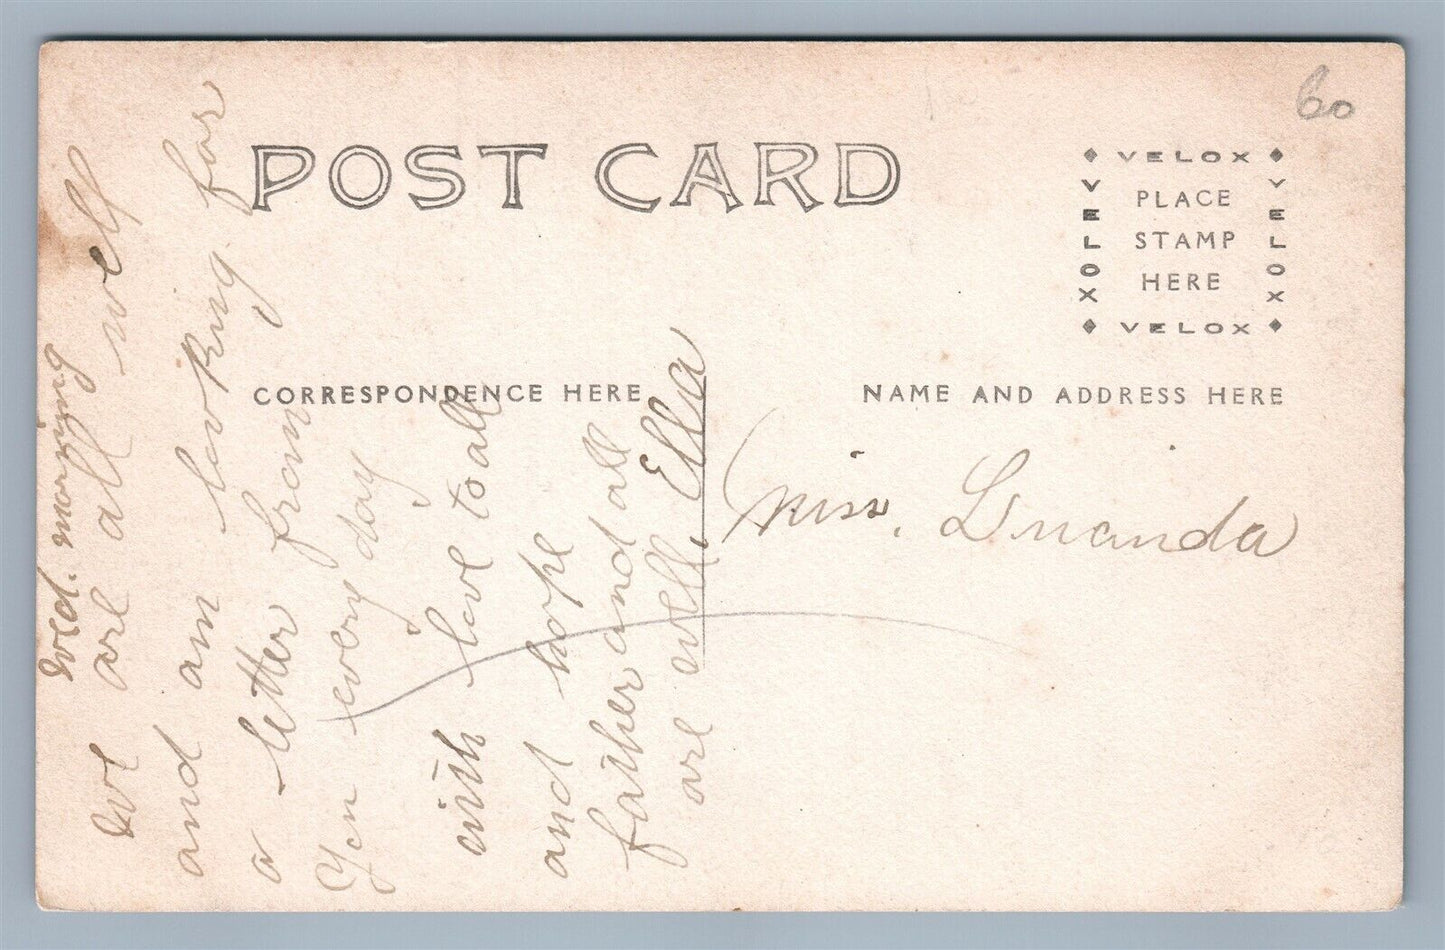 POST CARD
CORRESPONDENCE HERE
NAME AND ADDRESS HERE
VELOX
VELOX
PLACE
STAMP
HERE
VELOX
VELOX
60
Wed. morning
We are all well
and am looking for
a letter from
You every day
with love to all
and hope
father and all
are well. Ella
Miss.